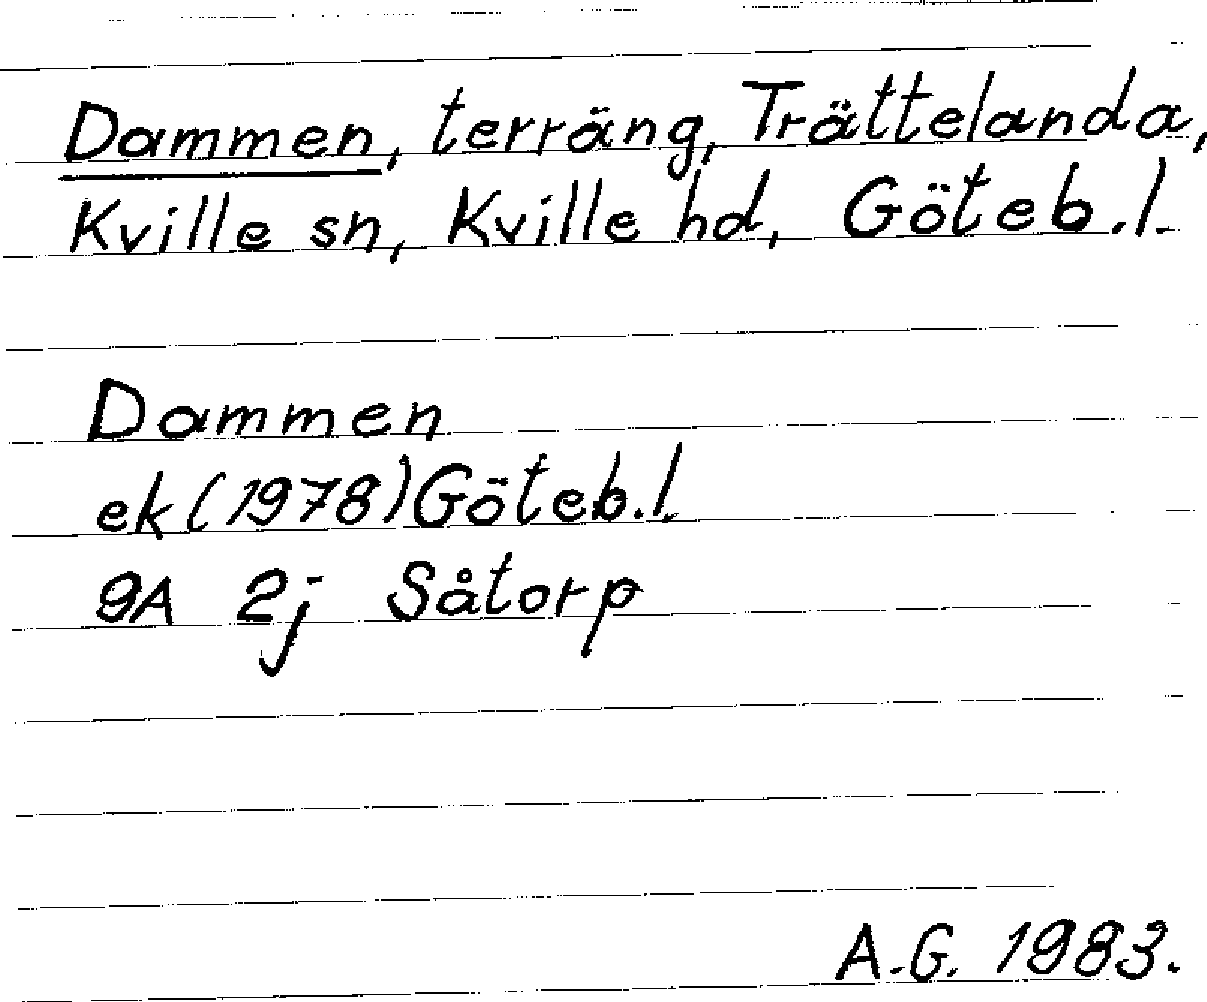 Dammen, terräng, Trättelanda,
Kville sn, Kville hd, Göteb.l.
Dammen
ek (1978) Göteb.l.
9A 2j Såtorp
A.G. 1983.